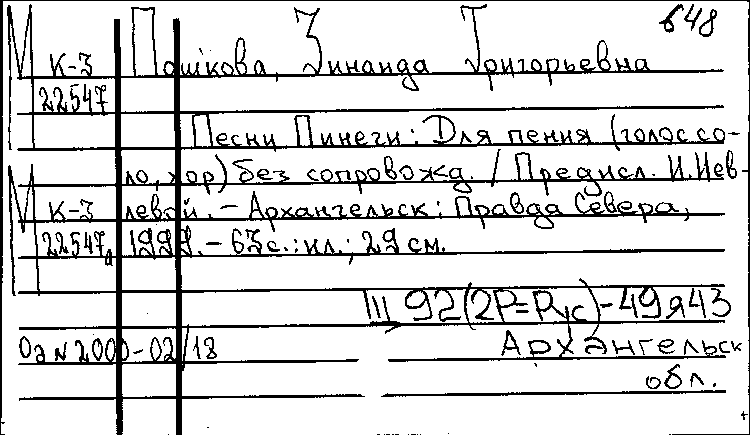 648
М К-3 Пашкова, Зинаида Григорьевна
22547
Песни Пинеги: Для пения (голос со-
ло, хор) без сопровожд. / Предисл. И. Иев-
М К-3 левой. – Архангельск: Правда Севера,
22547а 1999. – 63 с.: ил.; 29 см.
Ш 92(2Р=Рус)-49я43
Оэ N 2000-02/18 Архангельск
обл.